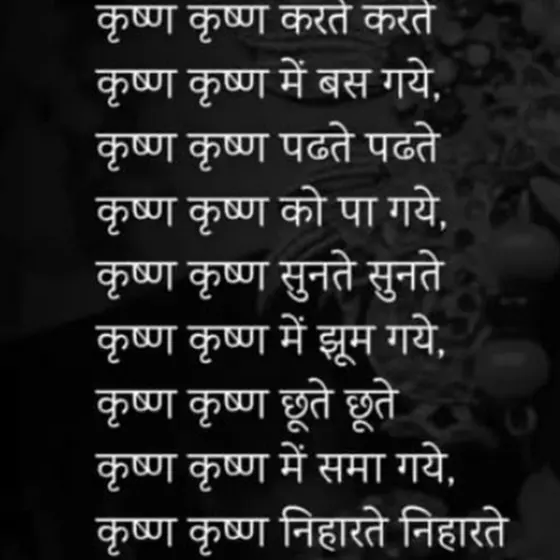 कृष्ण कृष्ण करते करते
कृष्ण कृष्ण में बस गये,
कृष्ण कृष्ण पढते पढते
कृष्ण कृष्ण को पा गये,
कृष्ण कृष्ण सुनते सुनते
कृष्ण कृष्ण में झूम गये,
कृष्ण कृष्ण छूते छूते
कृष्ण कृष्ण में समा गये,
कृष्ण कृष्ण निहारते निहारते